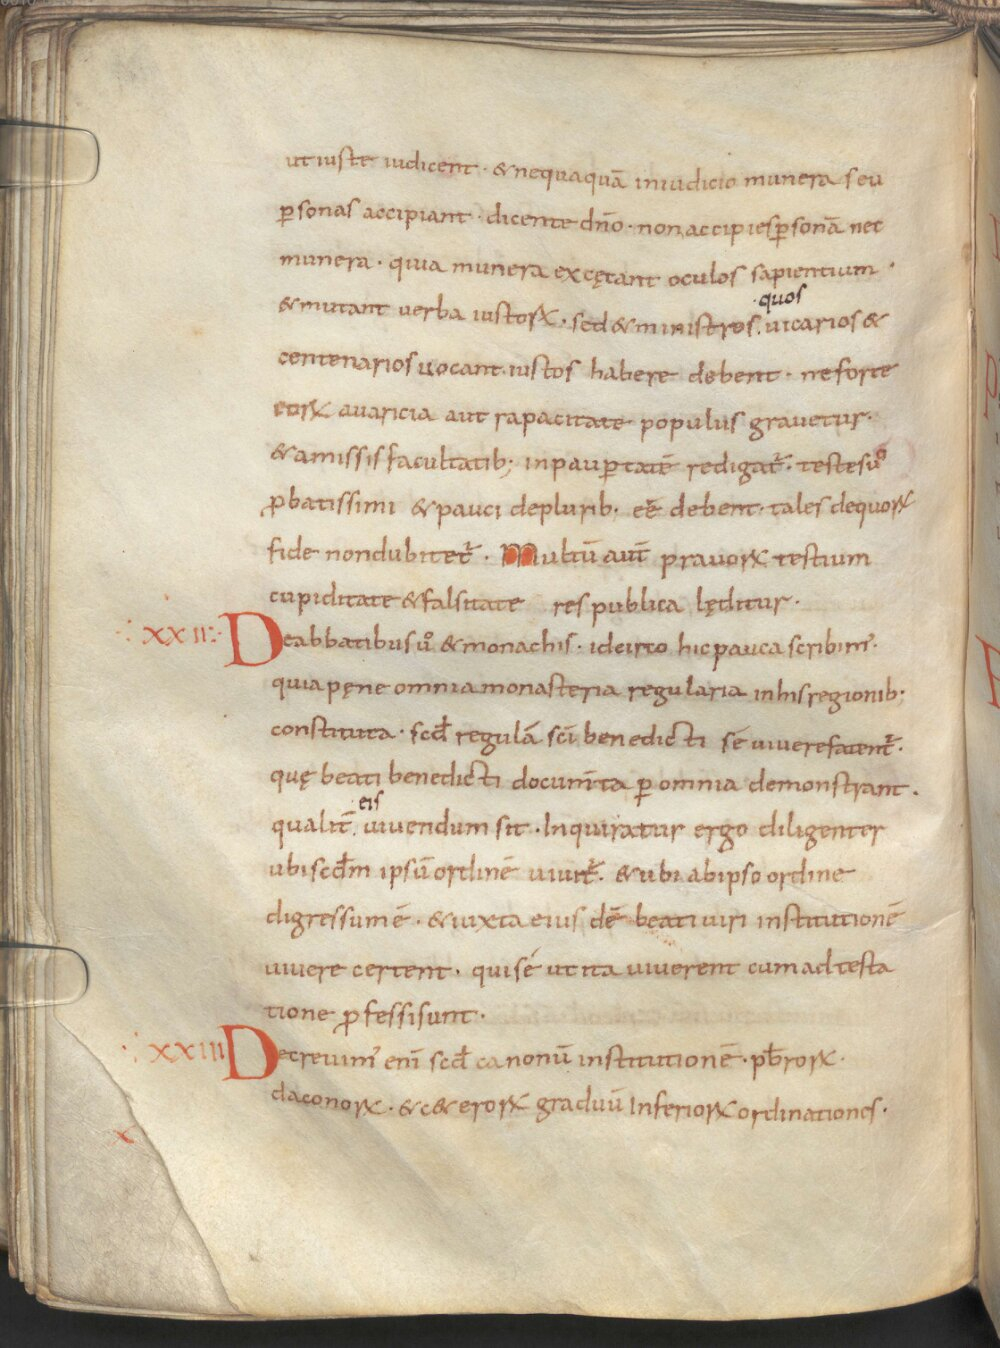 ut iuste iudicent · & nequaquā in iudicio munera seu
ꝑsonas accipiant · dicente dño · non accipies ꝑsonā nec
munera · quia munera excęcant oculos sapientium ·
quos
& mutant uerba iustorꝝ · sed & ministros uicarios &
centenarios uocant · iustos habere debent · ne forte
eorꝝ auaricia aut rapacitate populus grauetur ·
& amissis facultatib; in paupertatē redigat᷑ · testes ū
ꝓbatissimi & pauci de plurib· eē debent · tales de quorꝝ
fide non dubitet᷑ · Multū aut̄ prauorꝝ testium
cupiditate & falsitate res publica lęditur ·
xxii De abbatibus ū & monachis · idcirco hic pauca scribim᷒ ·
quia pęne omnia monasteria regularia in his regionib;
constituta · scd̄ regulā sc̄i benedicti sé uiuere fatent᷑ ·
quę beati benedicti docum̄ta ꝑ omnia demonstrant ·
eis
qualit̄ uiuendum sit · Inquiratur ergo diligenter
ubi scd̄m ipsū ordinē uiuit᷑ · & ubi ab ipso ordine
digressum ē · & iuxta eius dē beati uiri institutionē
uiuere certent · qui sé ut ita uiuerent cum adtesta
tione ꝓfessi sunt ·
xxiii Decreuim᷒ enī scd̄ canonū institutionē · p̄brorꝝ ·
diaconorꝝ · & c&erorꝝ graduū Inferiorꝝ ordinationes ·
x